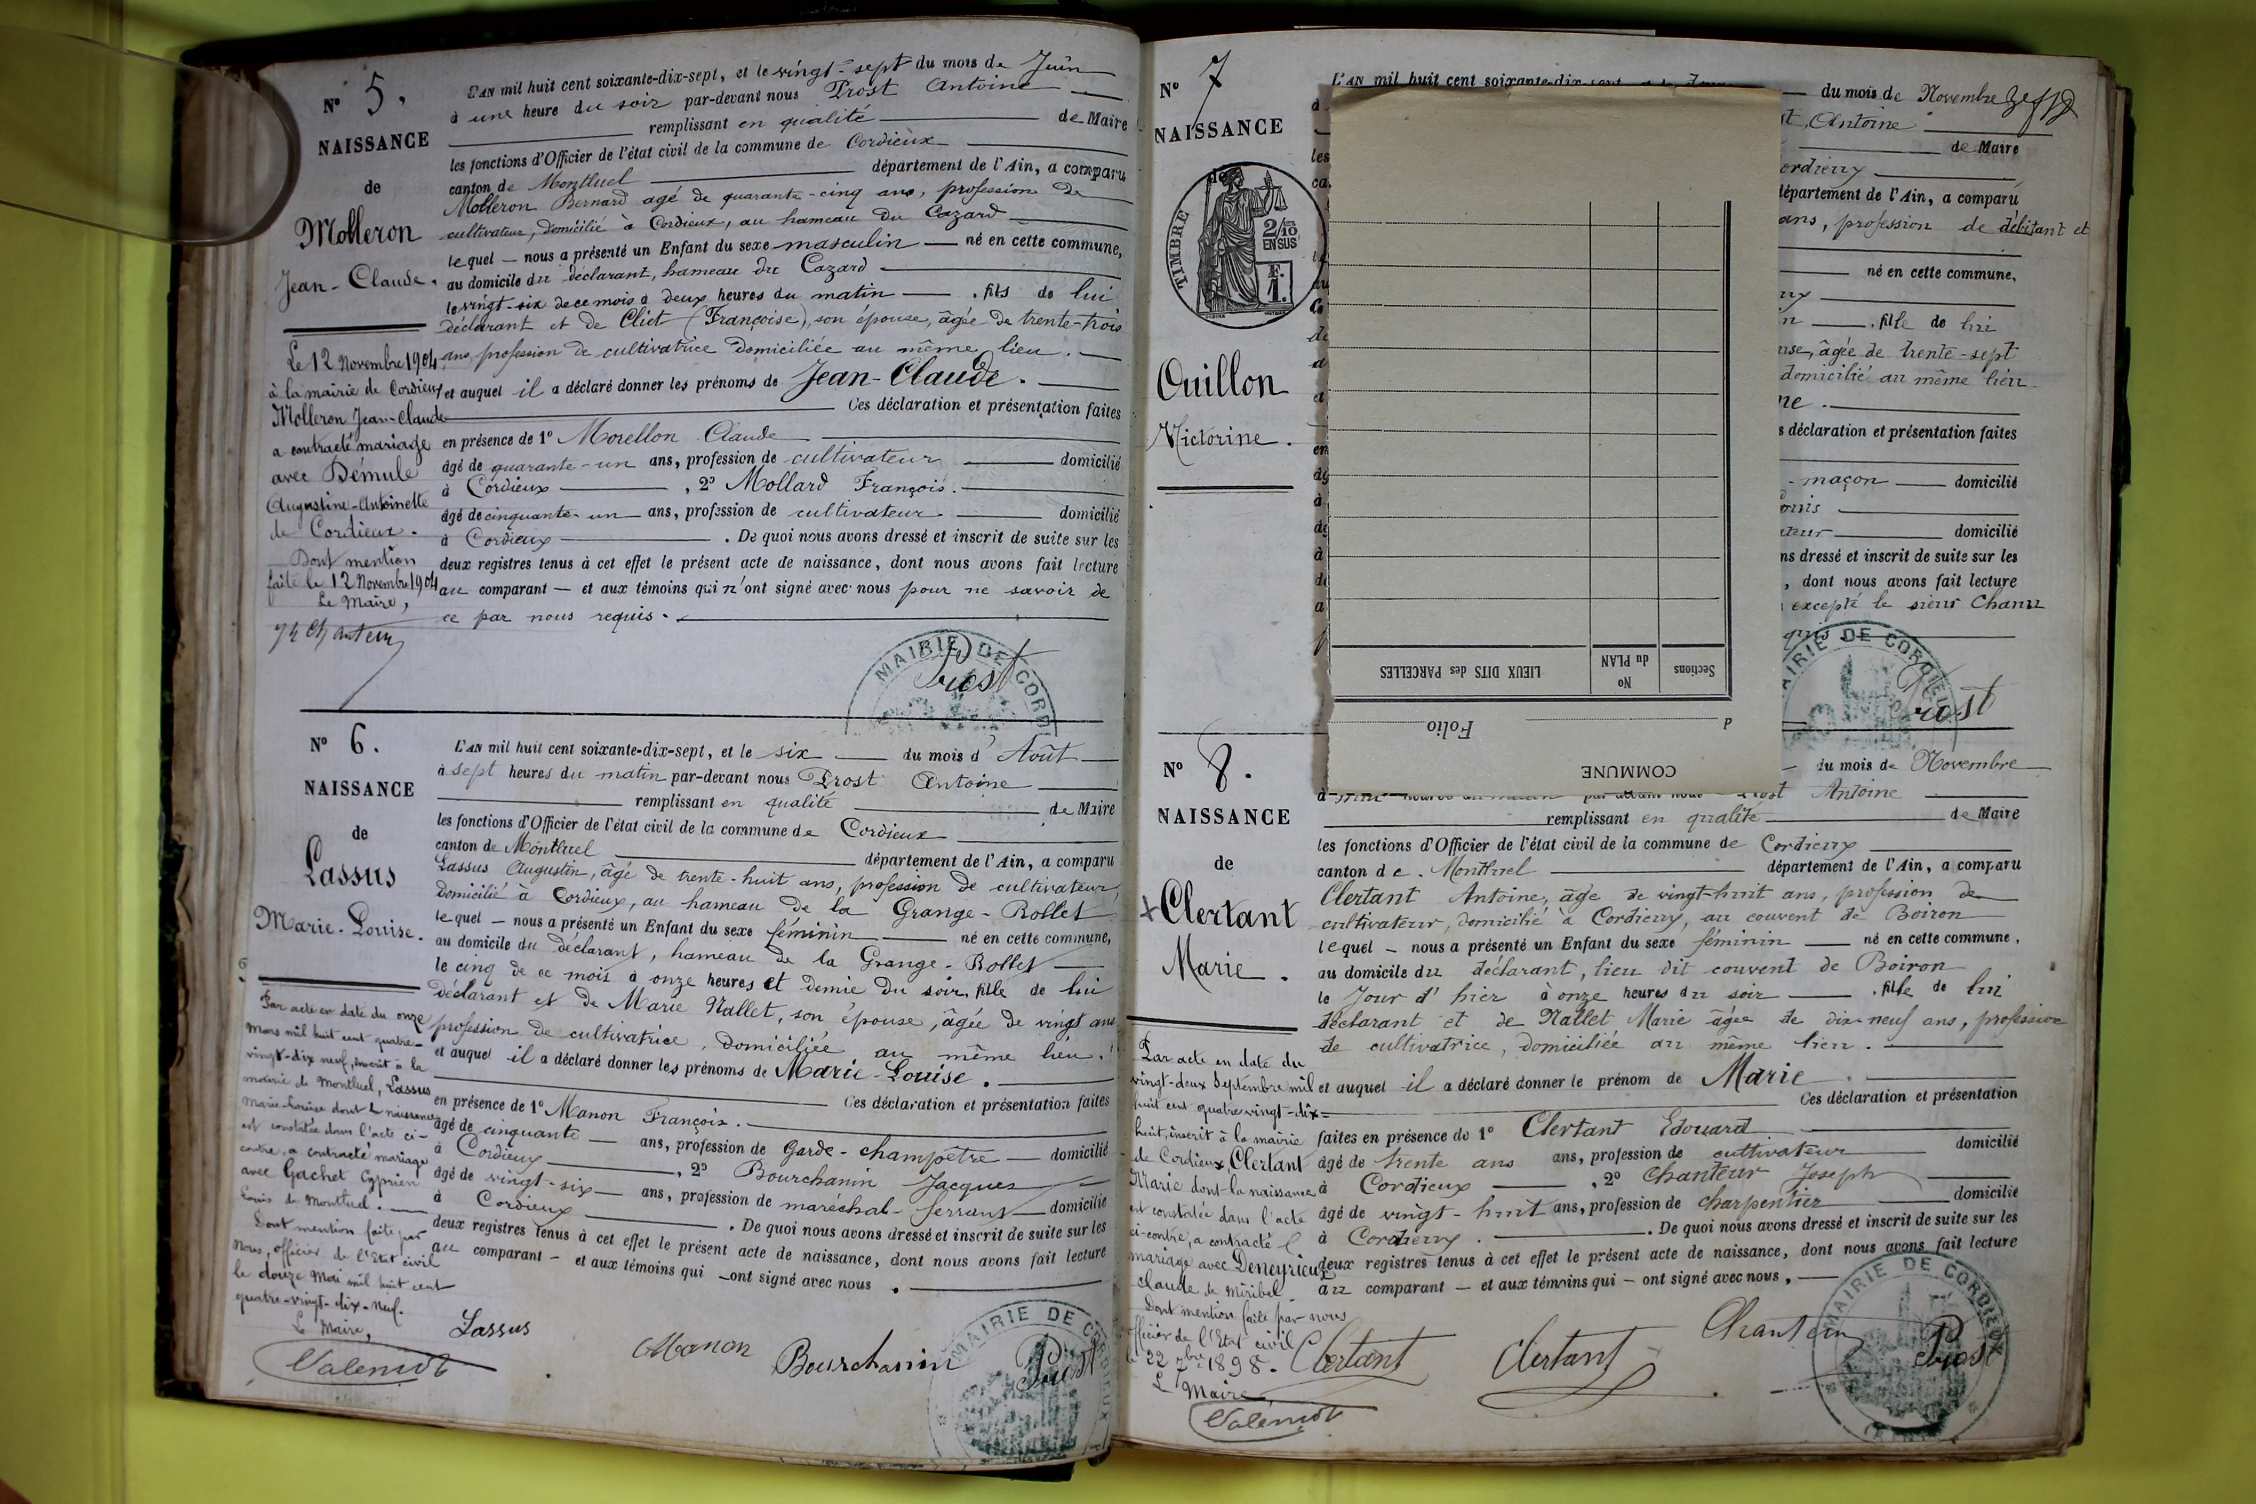 N° 5.
NAISSANCE
de
Molleron
Jean-Claude.
L'AN mil huit cent soixante-dix-sept, et le vingt-sept du mois de Juin
à une heure du soir par-devant nous Prost Antoine
remplissant en qualité de Maire
les fonctions d'Officier de l'état civil de la commune de Cordieux
canton de Montluel département de l'Ain, a comparu
Molleron Bernard agé de quarante-cinq ans, profession de
cultivateur, domicilié à Cordieux, au hameau du Cazard
lequel — nous a présenté un Enfant du sexe masculin — né en cette commune,
au domicile du déclarant, hameau du Cazard
le vingt-six de ce mois à deux heures du matin — . fils de lui
déclarant et de Cliet (Françoise), son épouse, âgée de trente-trois
ans, profession de cultivatrice domiciliée au même lieu.
et auquel il a déclaré donner les prénoms de Jean-Claude.
Ces déclaration et présentation faites
en présence de 1° Morellon Claude
âgé de quarante-un ans, profession de cultivateur domicilié
à Cordieux , 2° Mollard François.
âgé de cinquante-un ans, profession de cultivateur domicilié
à Cordieux . De quoi nous avons dressé et inscrit de suite sur les
deux registres tenus à cet effet le présent acte de naissance, dont nous avons fait lecture
au comparant — et aux témoins qui n'ont signé avec nous pour ne savoir de
ce par nous requis.
Le 12 Novembre 1904
à la mairie de Cordieux
Molleron Jean-Claude
a contracté mariage
avec Démule
Augustine-Antoinette
de Cordieux.
Dont mention
faite le 12 Novembre 1904
Le Maire,
MAIRIE DE CORD
Prost
N° 6.
NAISSANCE
de
Lassus
Marie-Louise.
L'AN mil huit cent soixante-dix-sept, et le six du mois d'Août
à sept heures du matin par-devant nous Prost Antoine
remplissant en qualité de Maire
les fonctions d'Officier de l'état civil de la commune de Cordieux
canton de Montluel département de l'Ain, a comparu
Lassus Augustin, âgé de trente-huit ans, profession de cultivateur
domicilié à Cordieux, au hameau de la Grange-Rollet
lequel — nous a présenté un Enfant du sexe féminin né en cette commune,
au domicile du déclarant, hameau de la Grange-Rollet
le cinq de ce mois à onze heures et demie du soir, fille de lui
déclarant et de Marie Nallet, son épouse, âgée de vingt ans
profession de cultivatrice, domiciliée au même lieu.
et auquel il a déclaré donner les prénoms de Marie-Louise.
Ces déclaration et présentation faites
en présence de 1° Manon François.
âgé de cinquante — ans, profession de Garde-champêtre — domicilié
à Cordieux , 2° Bourchanin Jacques
âgé de vingt-six — ans, profession de maréchal-ferrant — domicilié
à Cordieux . De quoi nous avons dressé et inscrit de suite sur les
deux registres tenus à cet effet le présent acte de naissance, dont nous avons fait lecture
au comparant — et aux témoins qui — ont signé avec nous .
Par acte en date du onze
Mars mil huit cent quatre-
vingt-dix neuf, inscrit à la
mairie de Montluel, Lassus
Marie-Louise dont la naissance
est constatée dans l'acte ci-
contre, a contracté mariage
avec Gachet Cyprien
Louis de Montluel.
Dont mention faite par
Nous, officier de l'Etat civil
le douze Mai mil huit cent
quatre-vingt-dix-neuf.
Le Maire,
Lassus
Manon
Bourchanin
Prost
N° 7
NAISSANCE
de
TIMBRE
2/10
EN SUS
F.
1.
Ouillon
Victorine.
L'AN mil huit cent soixante-dix-sept
du mois de Novembre
Antoine
de Maire
département de l'Ain, a comparu
ans, profession de débitant et
né en cette commune.
. fille de lui
âgée de trente-sept
domicilié au même lieu
déclaration et présentation faites
-maçon domicilié
domicilié
dressé et inscrit de suite sur les
, dont nous avons fait lecture
excepté le sieur
MAIRIE DE CORDIEUX
Prost
Sections
N° du PLAN
LIEUX DITS des PARCELLES
Folio
COMMUNE
N° 8.
NAISSANCE
de
Clertant
Marie.
du mois de Novembre
par-devant nous Prost Antoine
remplissant en qualité de Maire
les fonctions d'Officier de l'état civil de la commune de Cordieux
canton de . Montluel département de l'Ain, a comparu
Clertant Antoine, âgé de vingt-huit ans, profession de
cultivateur, domicilié à Cordieux, au couvent de Boiron
lequel — nous a présenté un Enfant du sexe féminin — né en cette commune,
au domicile du déclarant, lieu dit couvent de Boiron
le Jour d'hier à onze heures du soir — . fille de lui
déclarant et de Nallet Marie âgée de dix-neuf ans, profession
de cultivatrice, domiciliée au même lieu.
et auquel il a déclaré donner le prénom de Marie
Ces déclaration et présentation
faites en présence de 1° Clertant Edouard
âgé de trente ans ans, profession de cultivateur domicilié
à Cordieux , 2° Chanteur Joseph
âgé de vingt-huit ans, profession de charpentier domicilié
à Cordieux . De quoi nous avons dressé et inscrit de suite sur les
deux registres tenus à cet effet le présent acte de naissance, dont nous avons fait lecture
au comparant — et aux témoins qui — ont signé avec nous,
Par acte en date du
vingt-deux Septembre mil
huit cent quatre vingt-dix-
huit, inscrit à la mairie
de Cordieux, Clertant
Marie dont la naissance
est constatée dans l'acte
ci-contre, a contracté
mariage avec Deneyrieux
Claude de Miribel.
Dont mention faite par nous
officier de l'Etat civil
le 22 7bre 1898.
Le Maire
Clertant
Clertant
Chanteur
Prost
MAIRIE DE CORDIEUX